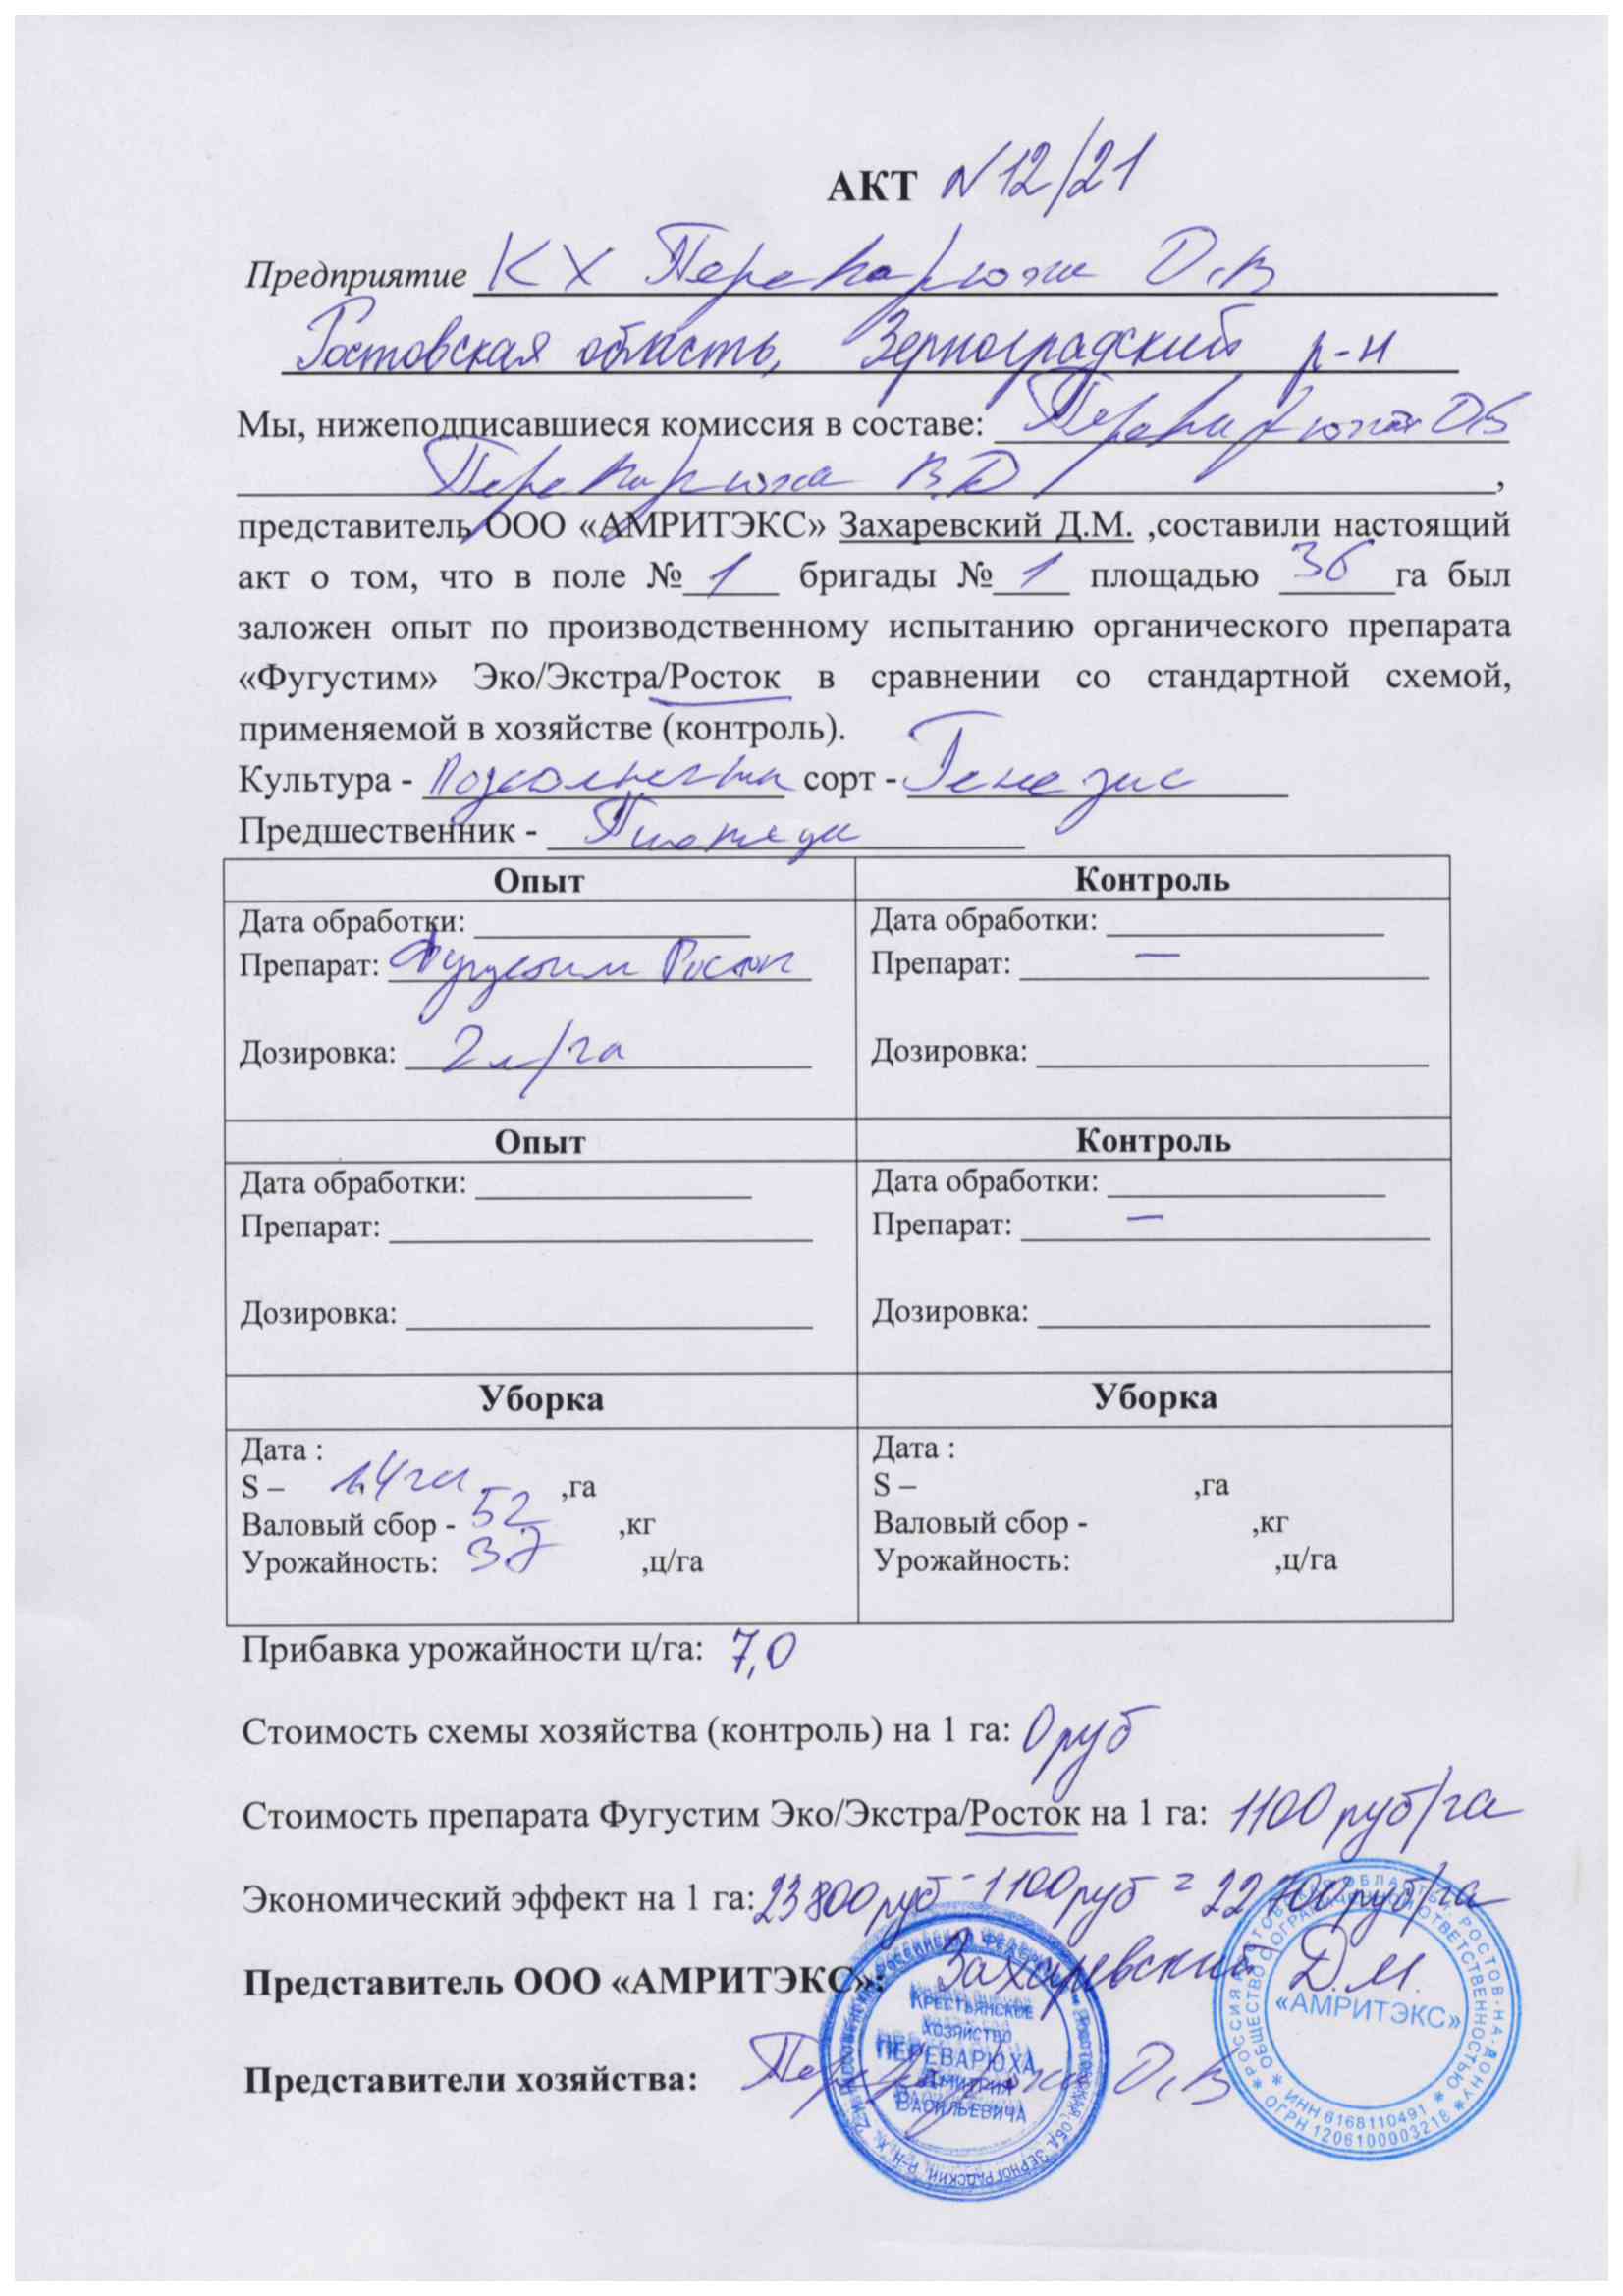 АКТ N12/21
Предприятие КХ Переварюха Д.В
Ростовская область, Зерноградский р-н
Мы, нижеподписавшиеся комиссия в составе: Переварюха Д.В
Переварюха В.Д ,
представитель ООО «АМРИТЭКС» Захаревский Д.М. ,составили настоящий
акт о том, что в поле № 1 бригады № 1 площадью 36 га был
заложен опыт по производственному испытанию органического препарата
«Фугустим» Эко/Экстра/Росток в сравнении со стандартной схемой,
применяемой в хозяйстве (контроль).
Культура - Подсолнечник сорт - Генезис
Предшественник - Пшеница
Опыт Контроль
Дата обработки: Дата обработки:
Препарат: Фугустим Росток Препарат: —
Дозировка: 2л/га Дозировка:
Опыт Контроль
Дата обработки: Дата обработки:
Препарат: Препарат: —
Дозировка: Дозировка:
Уборка Уборка
Дата : Дата :
S – 1,4га ,га S – ,га
Валовый сбор - 52 ,кг Валовый сбор - ,кг
Урожайность: 37 ,ц/га Урожайность: ,ц/га
Прибавка урожайности ц/га: 7,0
Стоимость схемы хозяйства (контроль) на 1 га: 0руб
Стоимость препарата Фугустим Эко/Экстра/Росток на 1 га: 1100 руб/га
Экономический эффект на 1 га: 23800руб - 1100руб = 22700руб/га
Представитель ООО «АМРИТЭКС»: Захаревский Д.М.
Представители хозяйства: Переварюха Д.В
КРЕСТЬЯНСКОЕ
ХОЗЯЙСТВО
ПЕРЕВАРЮХА
ДМИТРИЯ
ВАСИЛЬЕВИЧА
РОСТОВСКАЯ ОБЛ. ЗЕРНОГРАДСКИЙ Р-Н
«АМРИТЭКС»
РОССИЯ РОСТОВСКАЯ ОБЛАСТЬ Г. РОСТОВ-НА-ДОНУ
ОБЩЕСТВО С ОГРАНИЧЕННОЙ ОТВЕТСТВЕННОСТЬЮ
ИНН 6168110491
ОГРН 1206100003218